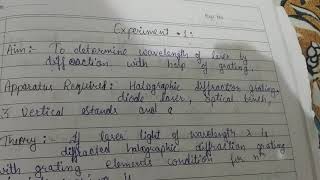 Experiment - 1:
Aim:- To determine wavelength of laser by
diffraction with help of grating.
Apparatus Required:- Holographic diffraction grating,
diode laser, optical bench,
3 Vertical stands and a
Theory:- If laser light of wavelength λ is
diffracted holographic diffraction grating
with grating element condition for n